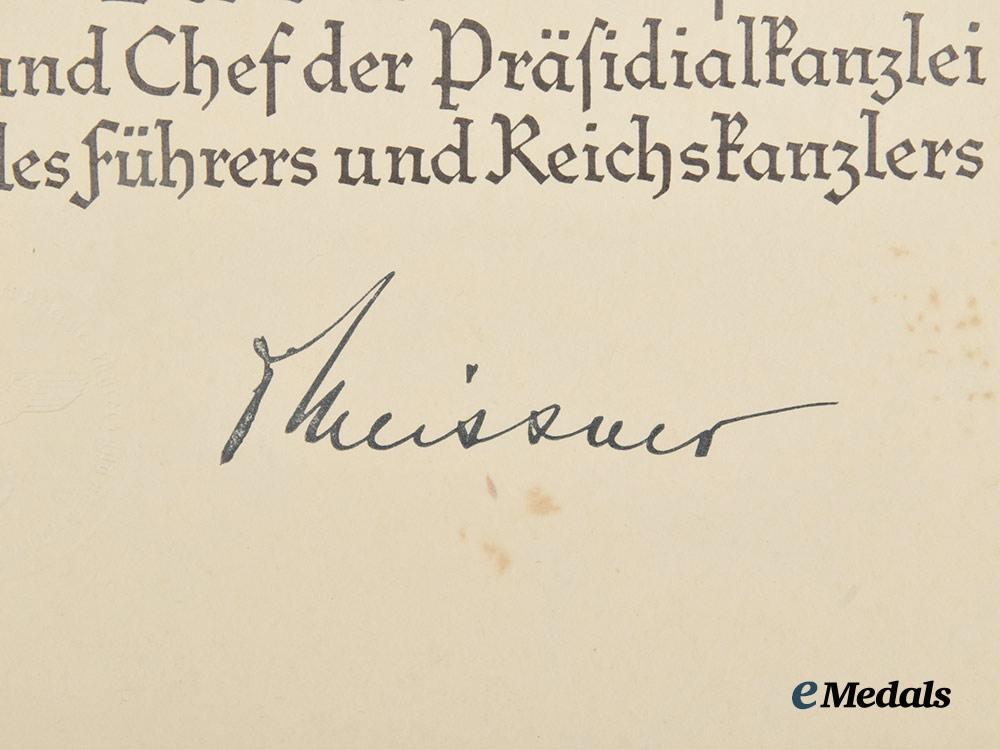 und Chef der Präſidialkanzlei
des Führers und Reichskanzlers
Meissner
eMedals